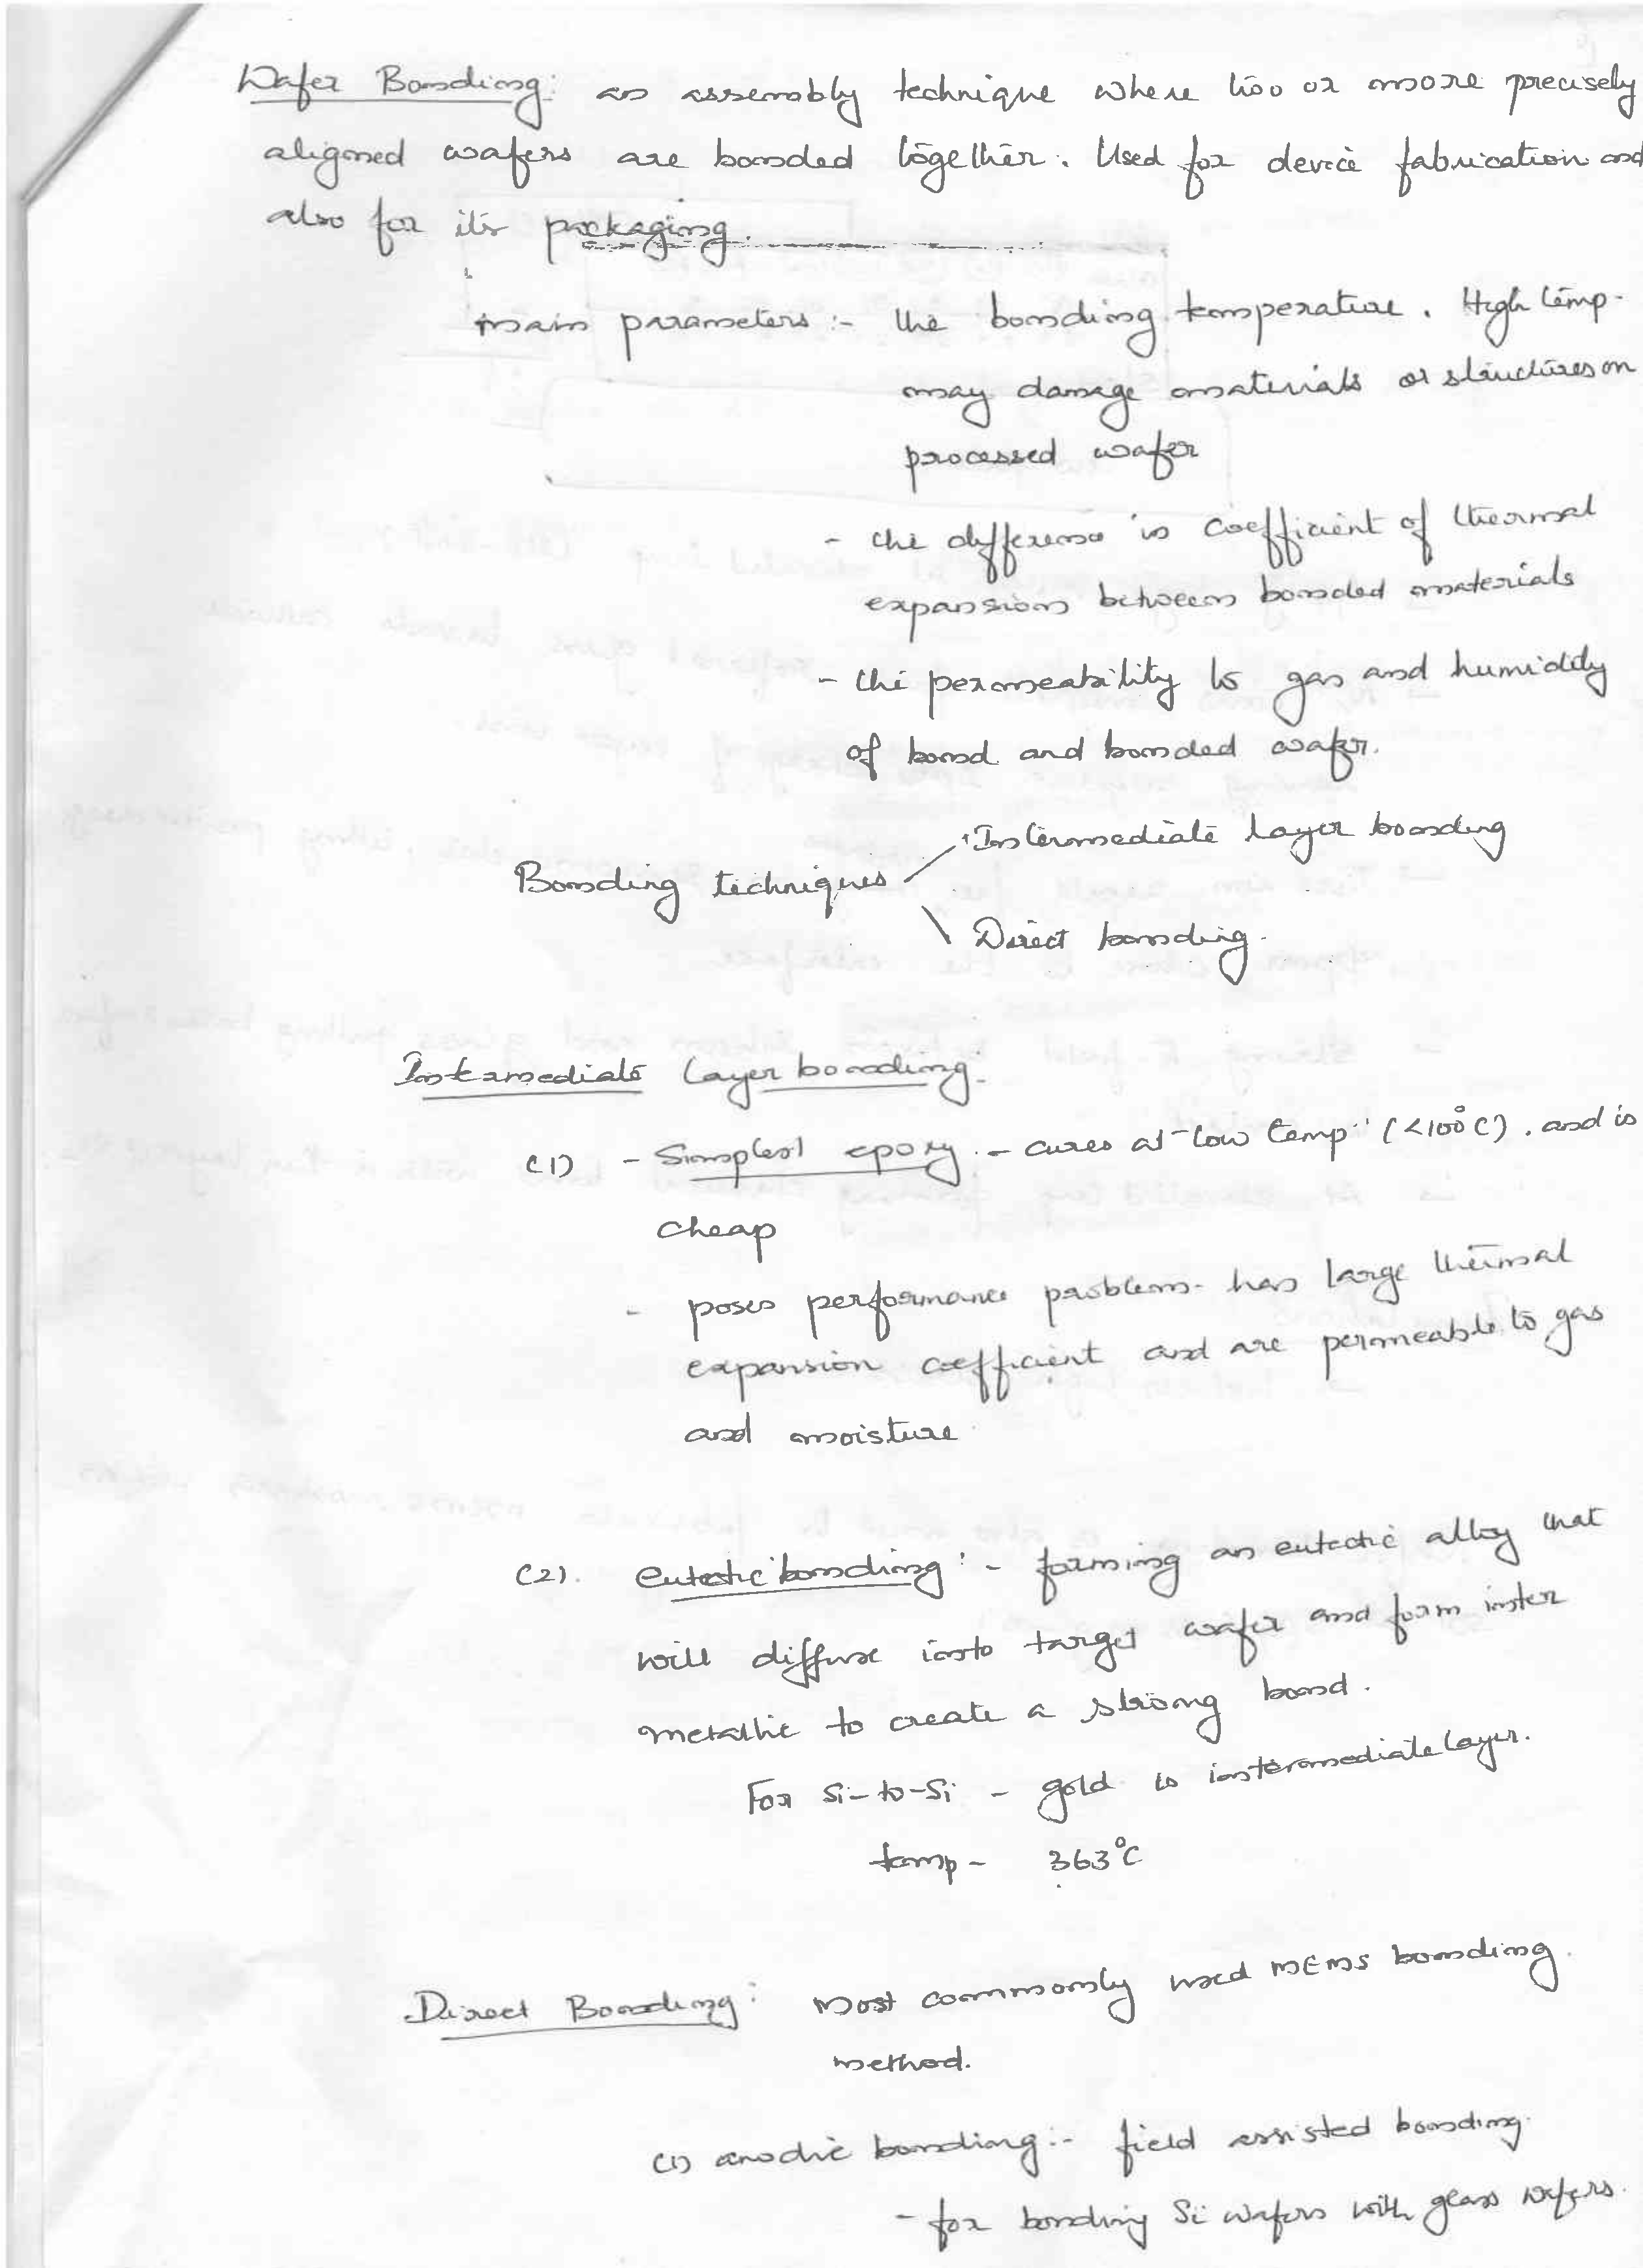 Wafer Bonding: an assembly technique where two or more precisely
aligned wafers are bonded together. Used for device fabrication and
also for its packaging.
main parameters :- the bonding temperature. High temp.
may damage materials or structures on
processed wafer
- the difference in coefficient of thermal
expansion between bonded materials
- the permeability to gas and humidity
of bond and bonded wafer.
Intermediate Layer bonding
Bonding techniques
Direct bonding.
Intermediate Layer bonding:
(1) - Simplest epoxy :- cures at low temp (<100°C). and is
cheap
- poses performance problem - has large thermal
expansion coefficient and are permeable to gas
and moisture
(2). Eutectic bonding :- forming an eutectic alloy that
will diffuse into target wafer and form inter
metallic to create a strong bond.
For Si-to-Si - gold is intermediate layer.
temp - 363°C
Direct Bonding: Most commonly used MEMS bonding
method.
(1) anodic bonding :- field assisted bonding.
- for bonding Si wafers with glass wafers.